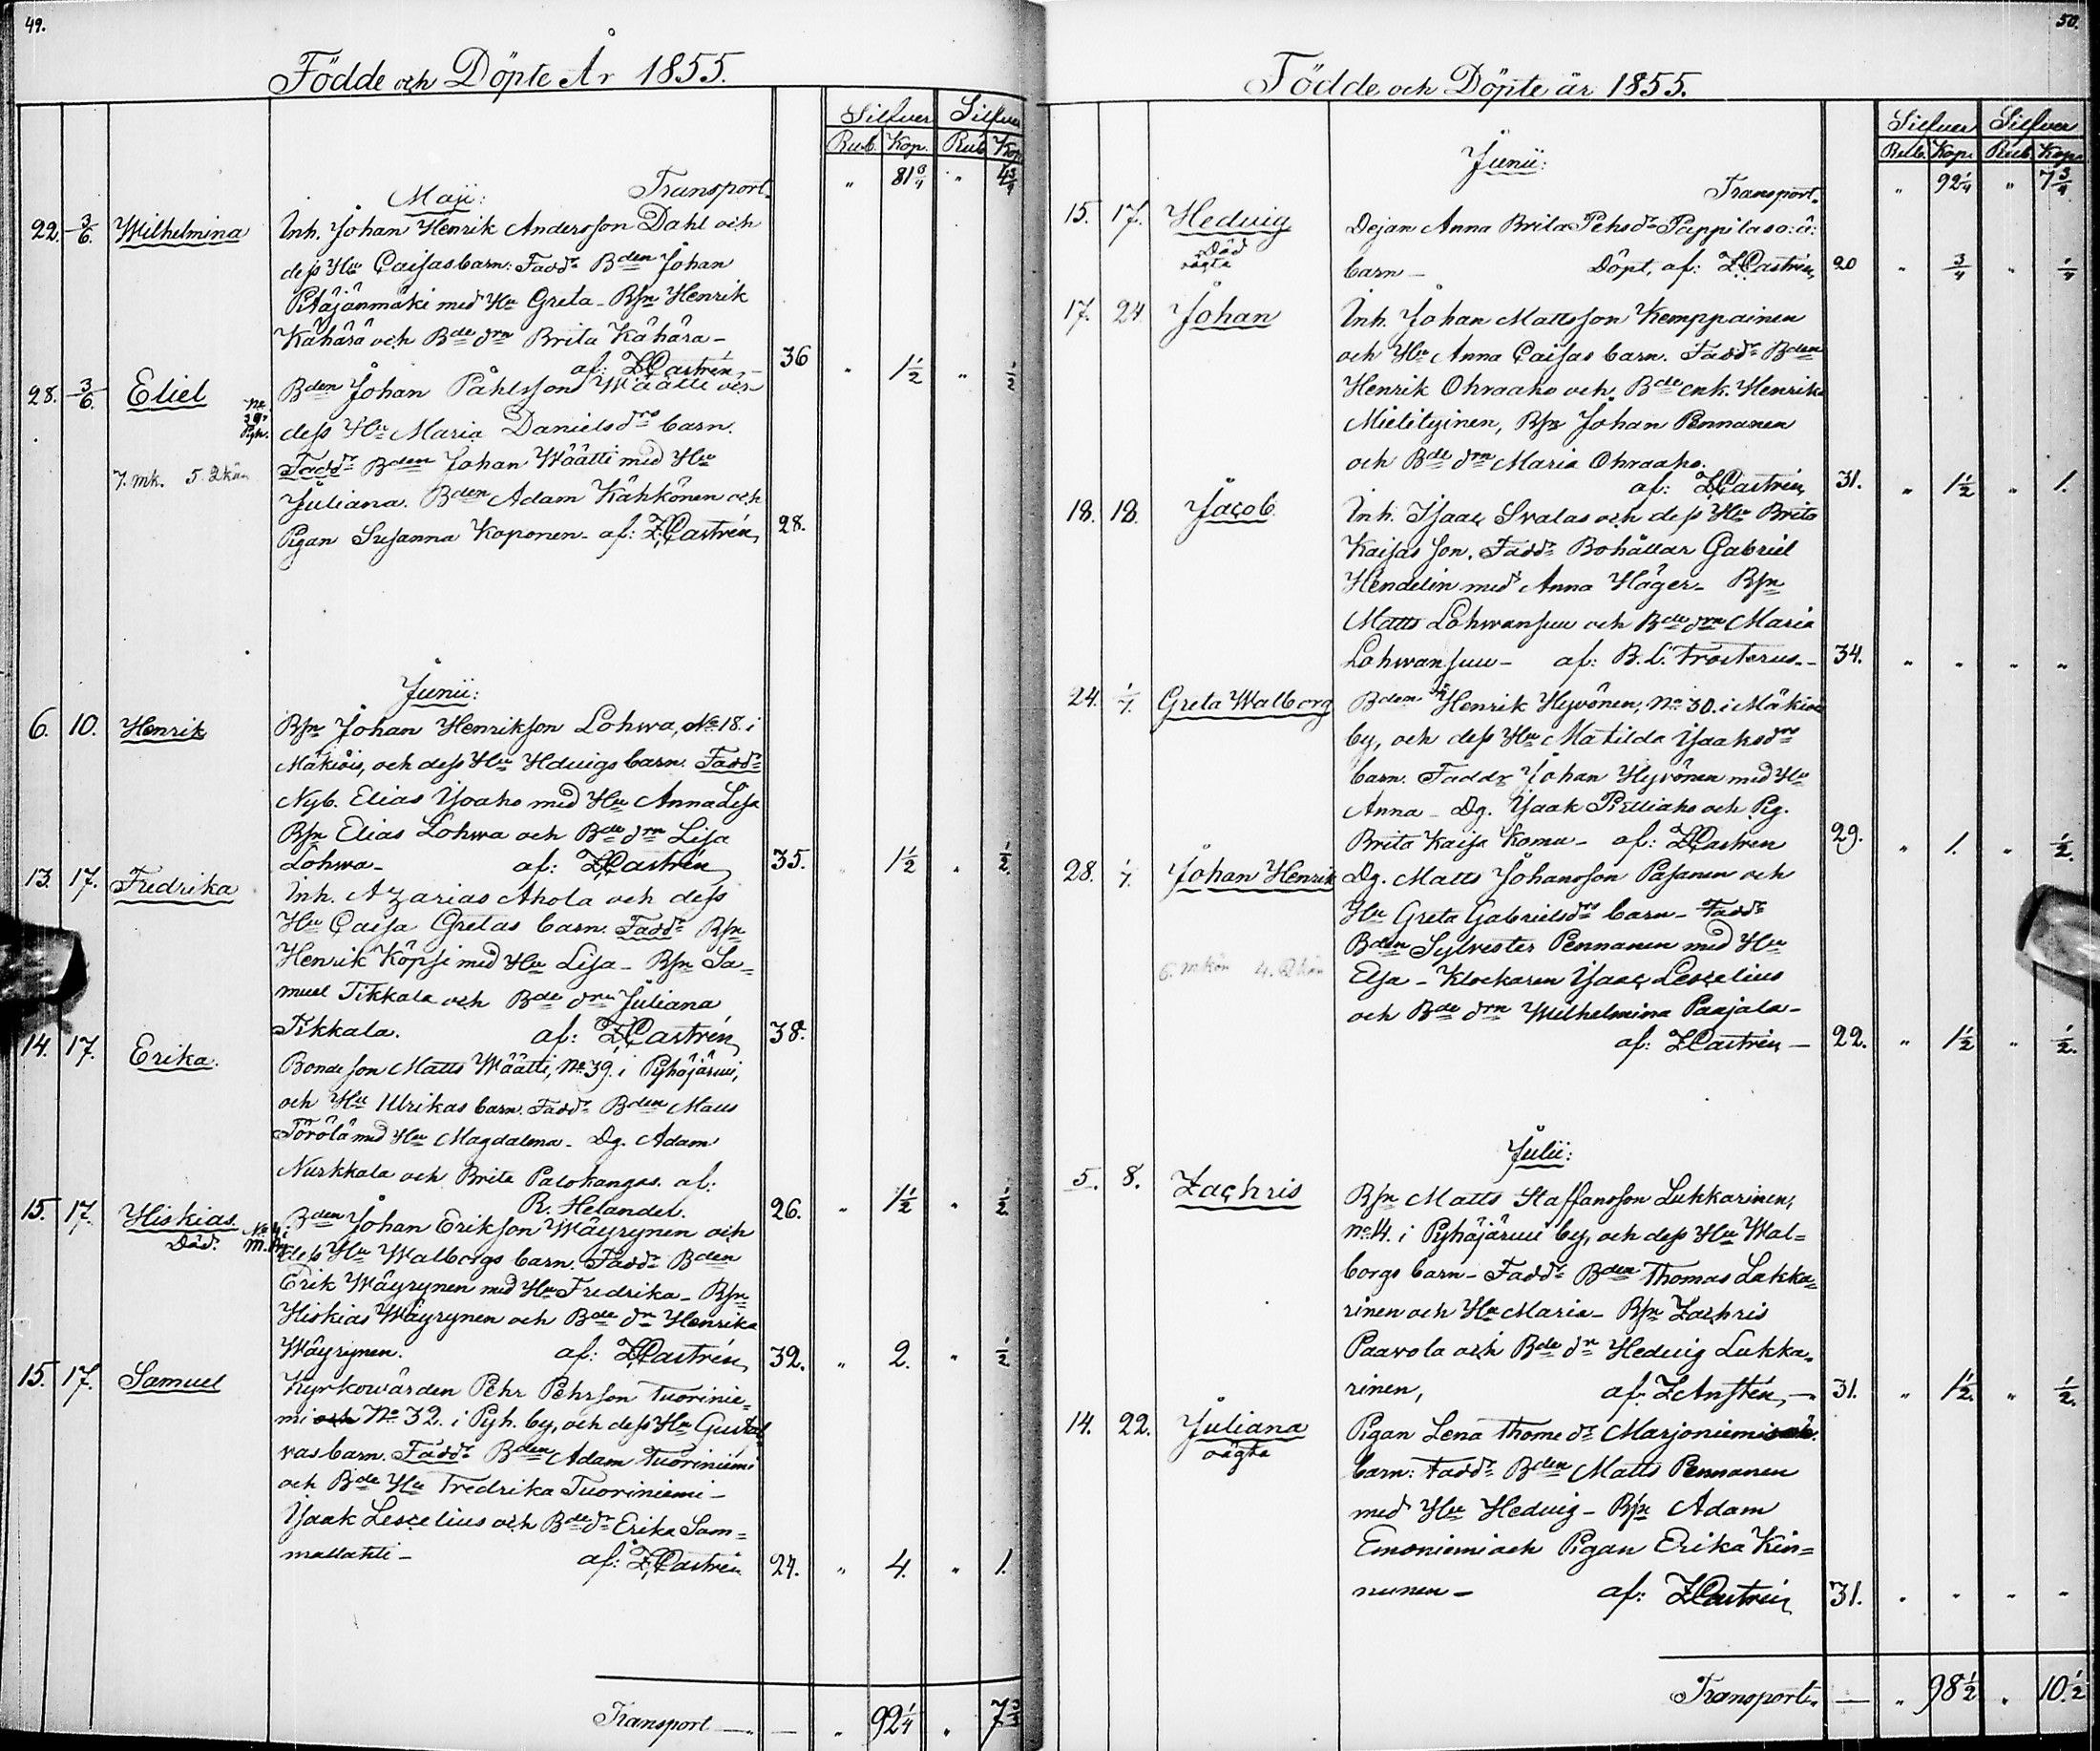 49.
Födde och Döpte År 1855.
Silfver Silfver
Rub. Kop. Rub. Kop.
Maji: Transport " 81 3/4 " 4 3/4
22. 3/6. Wilhelmina Inh. Johan Henrik Andersson Dahl och
dess Hu Caisas barn: Fadd: Bden Johan
Pitäjänmäki med Hu Greta - Bsn Henrik
Kähärä och Bde drn Brita Kähära -
af: Z.Castrén, - 36 " 1 1/2 " 1/2
28. 3/6. Eliel Bden Johan Påhlsson Wäätti och
No. 39. Pyh. dess Hu Maria Danielsdrs barn.
Fadd: Bden Johan Wäätti med Hu
7. mk. 5. Qkön Juliana. Bden Adam Kähkönen och
Pigan Susanna Koponen - af: Z.Castrén, 28.
Junii:
6. 10. Henrik Bsn Johan Henrikson Lohwa, No 18. i
Mäkiöis, och dess Hu Hdvigs barn. Fadd:
Nyb. Elias Ysoaho med Hu Anna Lisa
Bsn Elias Lohwa och Bde drn Lisa
Lohwa - af: Z.Castrén 35. " 1 1/2 " 1/2.
13. 17. Fredrika Inh. Azarias Ahola och dess
Hu Caisa Gretas barn. Fadd: Bsn
Henrik Köpsi med Hu Lisa - Bsn Sa=
muel Tikkala och Bde drn Juliana
Tikkala. af: Z.Castrén, 38.
14. 17. Erika. Bondeson Matts Wäätti, No 39. i Pyhäjärwi,
och Hu Ulrikas barn. Fadd: Bden Matts
Törölä med Hu Magdalena - Dg. Adam
Nurkkala och Brita Palokangas. af:
R. Helander. 26. " 1 1/2 " 1/2.
15. 17. Hiskias. Bden Johan Erikson Wäyrynen och
Död. dess Hu Walborgs barn. Fadd: Bden
Erik Wäyrynen med Hu Fredrika - Bsn
Hiskias Wäyrynen och Bde dr Henrika
Wäyrynen. af: Z.Castrén, 32. " 2. " 1/2
15. 17. Samuel Kyrkowärden Pehr Pehrson Tuorinie=
mi och No 32. i Pyh. by, och dess Hu Gusta
vas barn. Fadd: Bden Adam Tuoriniemi
och Bde Hu Fredrika Tuoriniemi -
Ysaak Lescelius och Bde dr Erika Sam=
mallahti - af: Z.Castrén 24. " 4. " 1.
Transport — — " 92 1/4 " 7 3/4
50.
Födde och Döpte år 1855.
Silfver Silfver
Rub. Kop. Rub. Kop.
Junii:
Transport. " 92 1/4 " 7 3/4
15. 17. Hedvig Dejan Anna Brita Pehsdr Pappilas o: ä:
Död
oägta barn - Döpt, af: Z.Castrén, 20 " 3/4 " 1/4
17. 24. Johan Inh. Johan Mattsson Kemppainen
och Hu Anna Caisas barn. Fadd: Bden
Henrik Ohraaho och Bde enk. Henrika
Mielityinen, Bsn Johan Pennanen
och Bde drn Maria Ohraaho.
af: Z.Castrén, 31. " 1 1/2 " 1.
18. 18. Jacob Inh. Isaac Svalas och dess Hu Brita
Kaisas son. Fadd: Bohållar Gabriel
Hendelin med Anna Häger - Bsn
Matts Lohwansuu och Bde drn Maria
Lohwansuu - af: B. L. Frosterus. - 34. " " " "
24. 1/7. Greta Walborg Bden Henrik Hyvönen, No 30. i Mäkiöis
by, och dess Hu Matilda Ysaksdrs
barn. Faddr Johan Hyvönen med Hu
Anna - Dg. Ysaak Pielliaho och Pig.
Brita Kaisa Komu - af: Z.Castren 29. " 1. " 1/2.
28. 1/7. Johan Henrik Dg. Matts Johansson Pasanen och
Hu Greta Gabrielsdrs barn - Fadd:
Bden Sylvester Pennanen med Hu
6. mkön 4. Qkön Elsa - Klockaren Ysaac Lescelius
och Bde drn Wilhelmina Paajala -
af: Z.Castrén - 22. " 1 1/2 " 1/2.
Julii:
5. 8. Zachris Bsn Matts Staffansson Lukkarinen,
No 4. i Pyhäjärwi by, och dess Hu Wal=
borgs barn - Fadd: Bden Thomas Lukka=
rinen och Hu Maria - Bsn Zachris
Paavola och Bde dr Hedvig Lukka=
rinen, af: 31. " 1 1/2. " 1/2.
14. 22. Juliana Pigan Lena Thome dr Marjoniemi
oägta barn: Fadd: Bden Matts Pennanen
med Hu Hedvig - Bsn Adam
Emoniemi och Pigan Erika Kin=
nunen - af: Z.Castrén 31. " " " "
Transport. — " 98 1/2 " 10 1/2